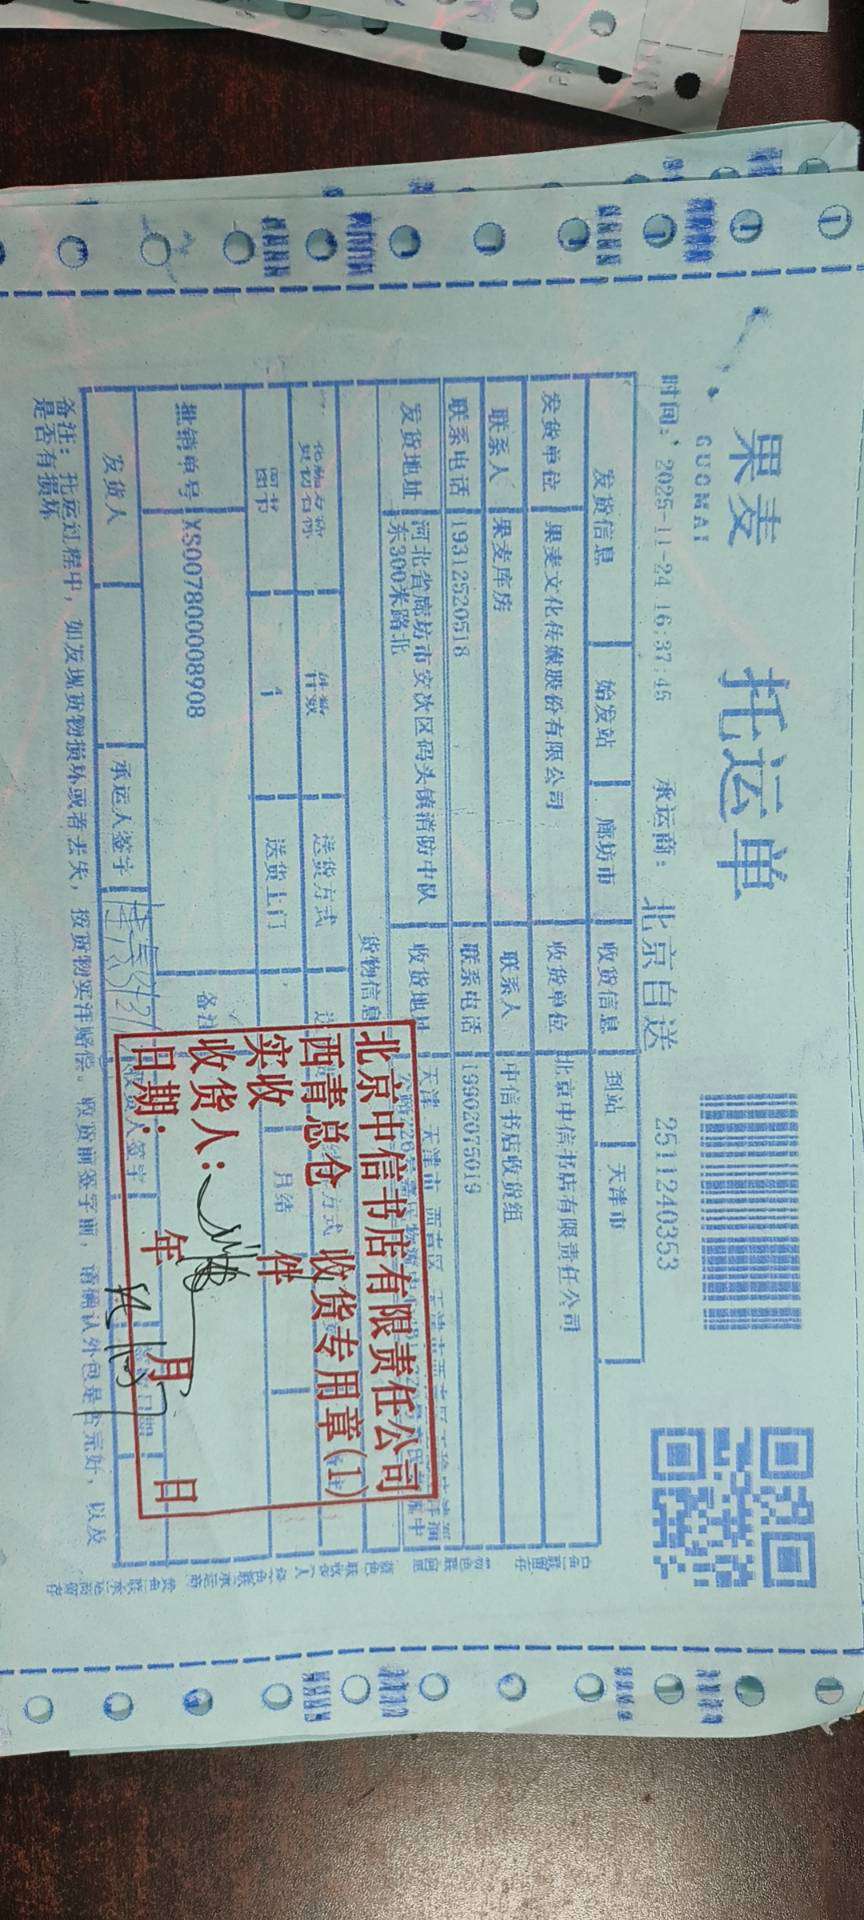 果麦
GUOMAI
托运单
时间: 2025-11-24 16:37:45 承运商: 北京自送 2511240353
发货信息 始发站 廊坊市 收货信息 到站 天津市
发货单位 果麦文化传媒股份有限公司 收货单位 北京中信书店有限责任公司
联系人 果麦库房 联系人 中信书店收货组
联系电话 19312520518 联系电话 19902075019
发货地址 河北省廊坊市安次区码头镇消防中队东300米路北 收货地址 天津 天津市 西青区
货物信息
货物名称 件数 送货方式
图书 1 送货上门 月结
批销单号 XS007800008908 备注
发货人 承运人签字 收货人签字
备注: 托运过程中, 如发现货物损坏或者丢失, 按货物实洋赔偿。收货前签字前, 请确认外包是否完好, 以及
是否有损坏
北京中信书店有限责任公司
西青总仓 收货专用章(1)
实收 件
收货人:
日期: 年 月 日